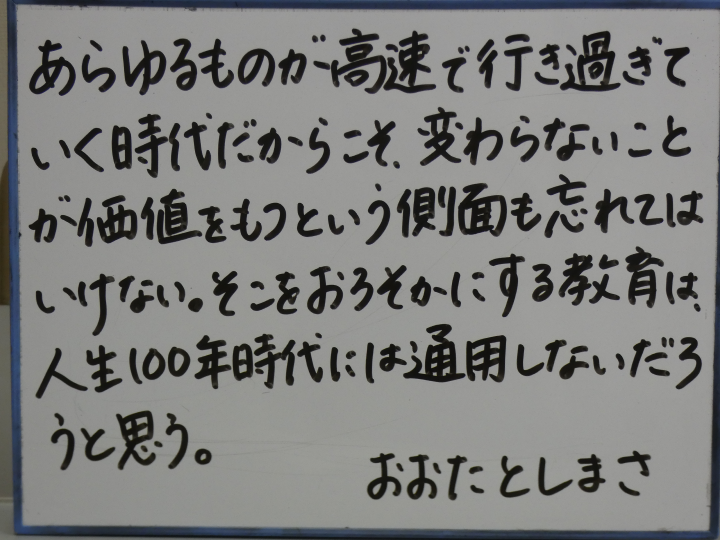 あらゆるものが高速で行き過ぎて
いく時代だからこそ、変わらないこと
が価値をもつという側面も忘れては
いけない。そこをおろそかにする教育は、
人生100年時代には通用しないだろ
うと思う。
おおたとしまさ